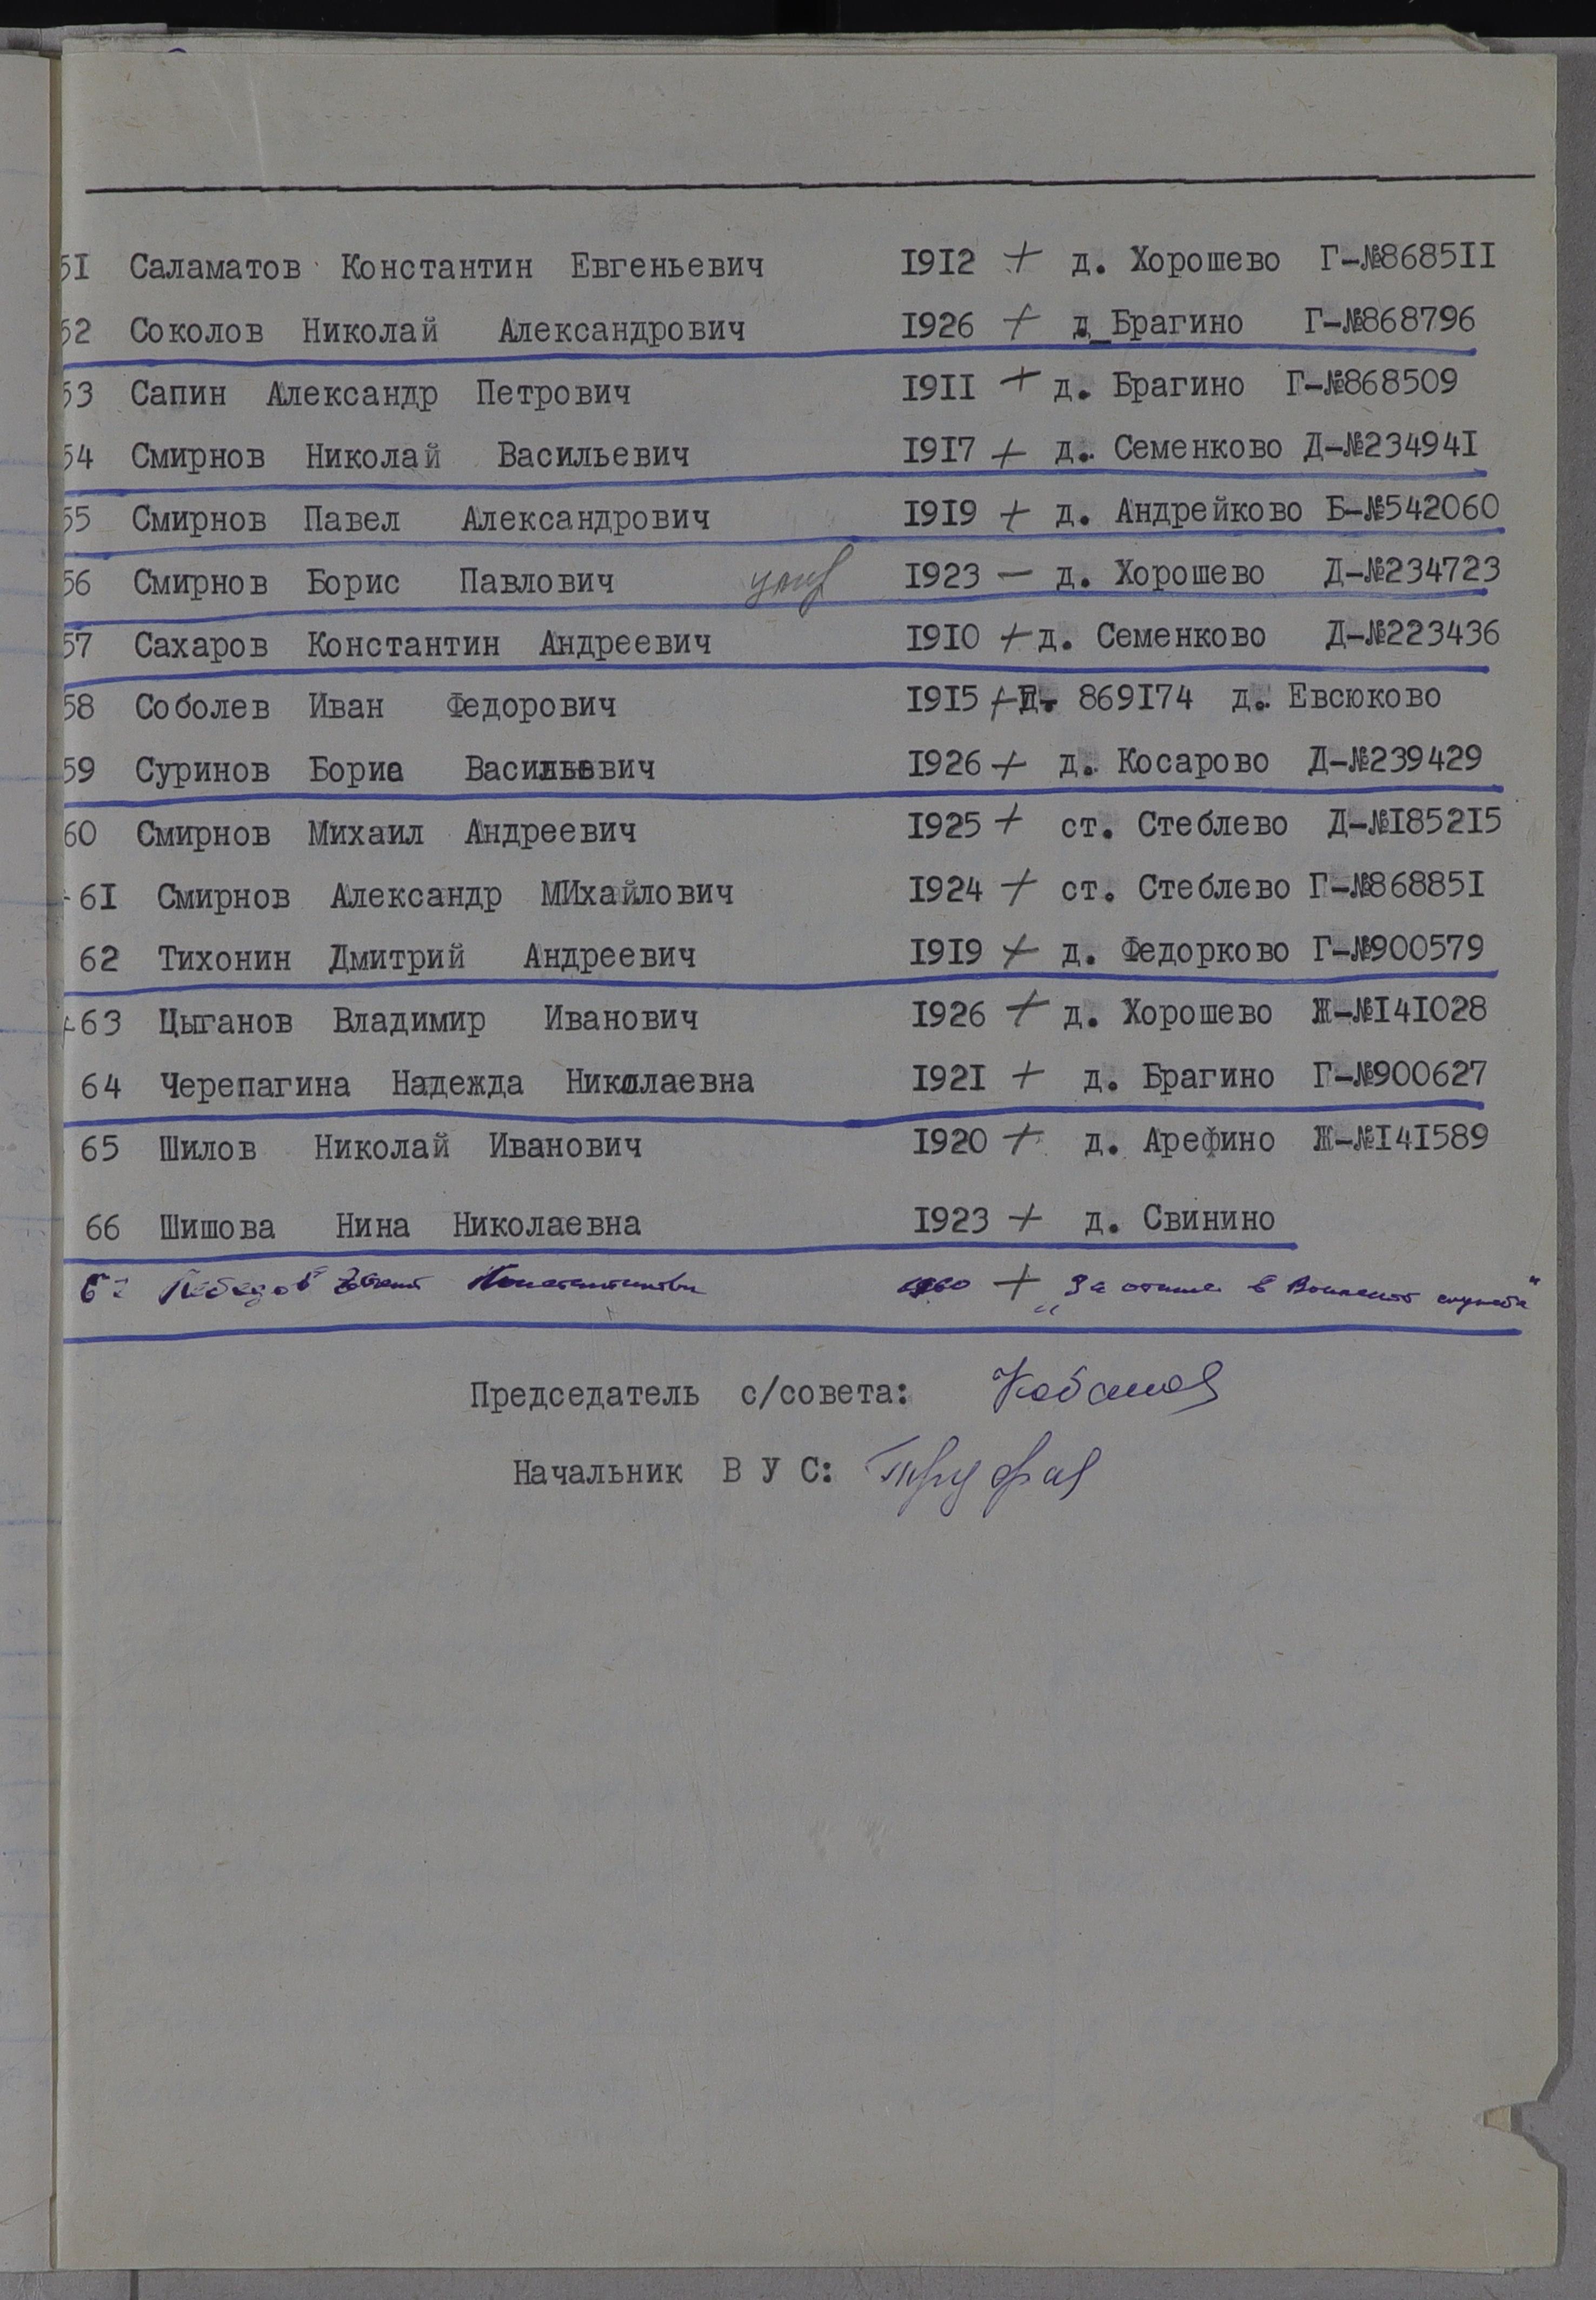 51 Саламатов Константин Евгеньевич 1912 + д. Хорошево Г-№868511
52 Соколов Николай Александрович 1926 + д_Брагино Г-№868796
53 Сапин Александр Петрович 1911 + д. Брагино Г-№868509
54 Смирнов Николай Васильевич 1917 + д. Семенково Д-№234941
55 Смирнов Павел Александрович 1919 + д. Андрейково Б-№542060
56 Смирнов Борис Павлович 1923 — д. Хорошево Д-№234723
57 Сахаров Константин Андреевич 1910 + д. Семенково Д-№223436
58 Соболев Иван Федорович 1915 + 869174 д. Евсюково
59 Суринов Борис Васильевич 1926 + д. Косарово Д-№239429
60 Смирнов Михаил Андреевич 1925 + ст. Стеблево Д-№185215
61 Смирнов Александр МИхайлович 1924 + ст. Стеблево Г-№868851
62 Тихонин Дмитрий Андреевич 1919 + д. Федорково Г-№900579
63 Цыганов Владимир Иванович 1926 + д. Хорошево Ж-№141028
64 Черепагина Надежда Николаевна 1921 + д. Брагино Г-№900627
65 Шилов Николай Иванович 1920 + д. Арефино Ж-№141589
66 Шишова Нина Николаевна 1923 + д. Свинино
1960 + „За отличие в Воинской службе"
Председатель с/совета:
Начальник В У С: